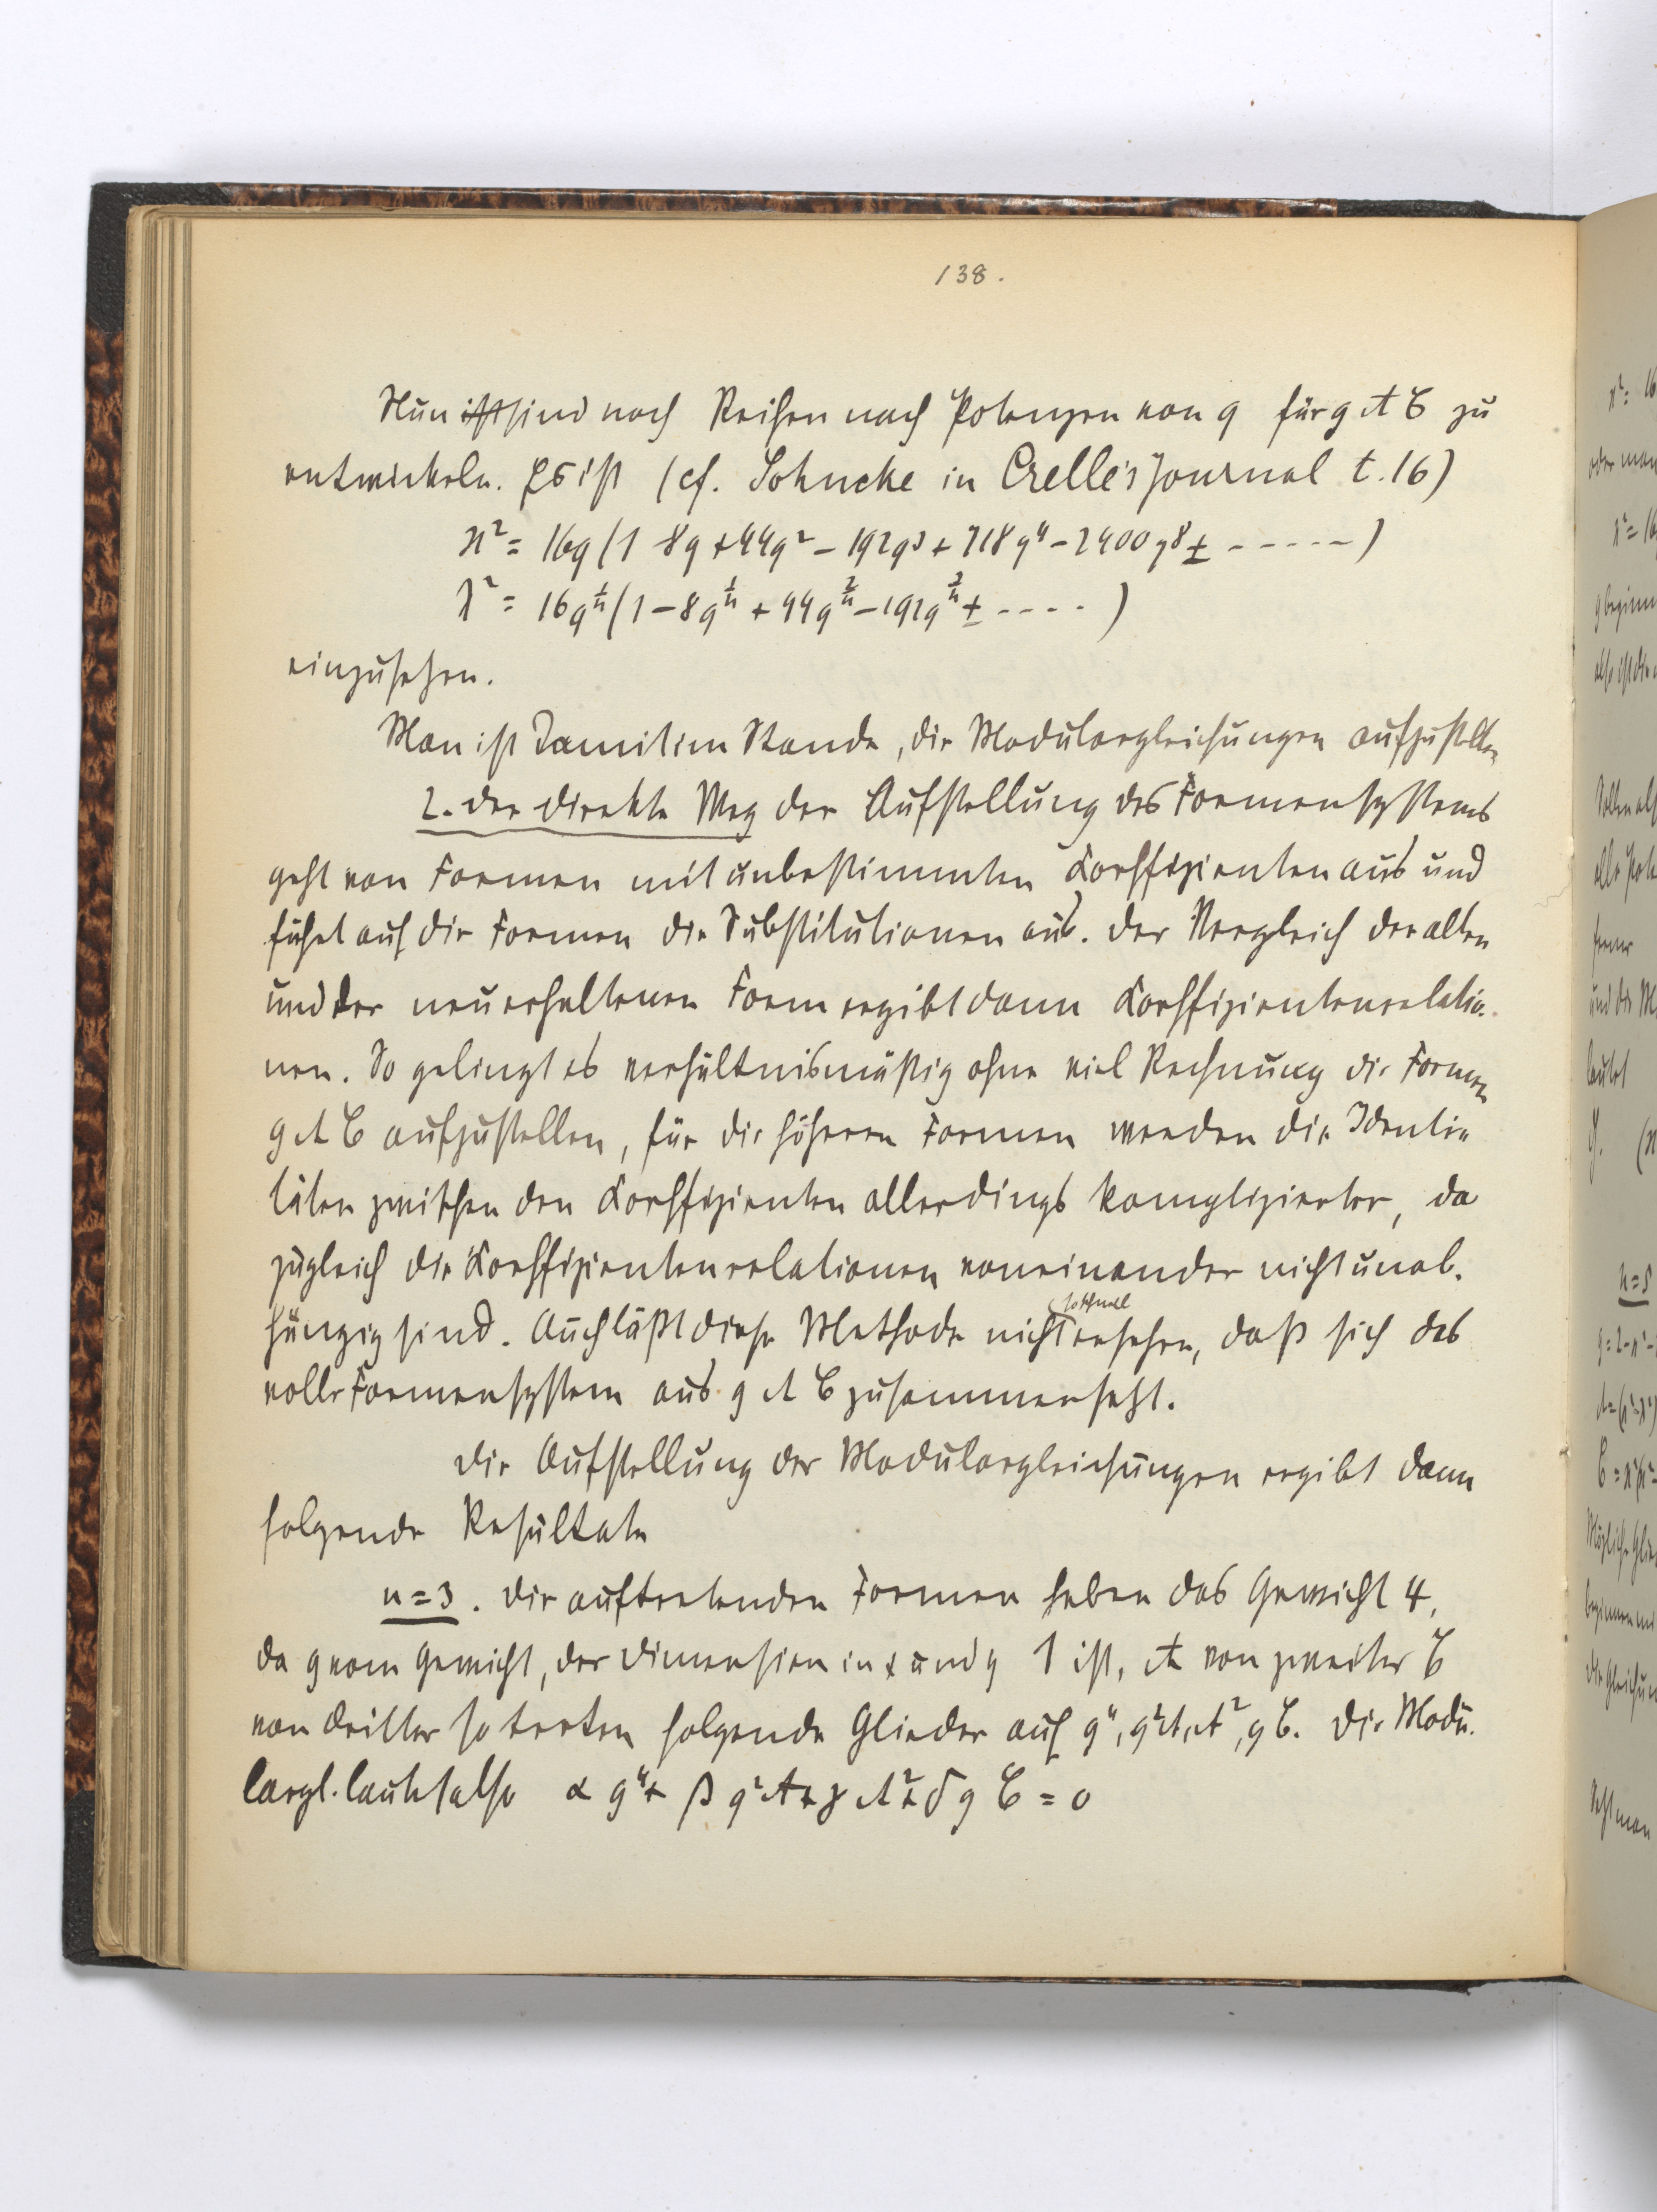 138.
Nun ist sind noch Reihen nach Potenzen von q für g A B zu
entwickeln. Es ist (cf. Sohncke in Crelle's Journal t. 16)
ϰ² = 16q (1 - 8q + 44q² - 192q³ + 718q⁴ - 2400q⁸ ± - - - - - )
λ² = 16q^{1/n} (1 - 8q^{1/n} + 44q^{2/n} - 192q^{3/n} ± - - - - )
einzusetzen.
Man ist damit im Stande, die Modulargleichungen aufzustellen
2. Der direkte Weg der Aufstellung des Formensystems
geht von Formen mit unbestimmten Koeffizienten aus und
führt auf die Formen die Substitutionen aus. Der Vergleich der alten
und der neuerhaltenen Form ergibt dann Koeffizientenrelatio-
nen. So gelingt es verhältnismäßig ohne viel Rechnung die Formen
g A B aufzustellen, für die höheren Formen werden die Identi-
täten zwischen den Koeffizienten allerdings komplizierter, da
zugleich die Koeffizientenrelationen voneinander nicht unab-
hängig sind. Auch läßt diese Methode nicht ersehen, daß sich das
volle Formensystem aus g A B zusammensetzt.
Die Aufstellung der Modulargleichungen ergibt dann
folgende Resultate
n = 3. Die auftretenden Formen haben das Gewicht 4,
da g vom Gewicht, der Dimension in x und y 1 ist, A von zweiter B
von dritter so treten folgende Glieder auf g⁴, g²A, A², g B. Die Modu-
largl. lautet also α g⁴ + β g² A + γ A² + δ g B = 0